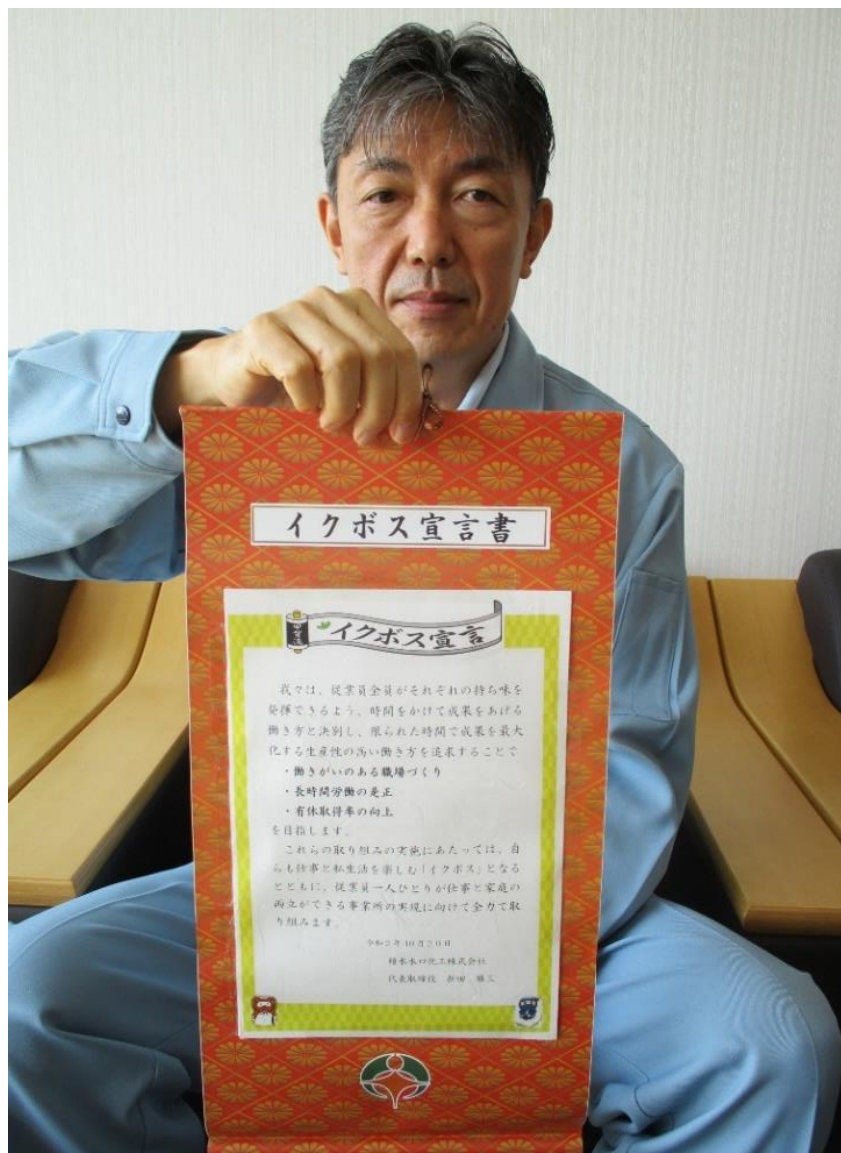 イクボス宣言書
甲賀流
イクボス宣言
我々は、従業員全員がそれぞれの持ち味を
発揮できるよう、時間をかけて成果をあげる
働き方と決別し、限られた時間で成果を最大
化する生産性の高い働き方を追求することで
・働きがいのある職場づくり
・長時間労働の是正
・有休取得率の向上
を目指します。
これらの取り組みの実施にあたっては、自
らも仕事と私生活を楽しむ「イクボス」となる
とともに、従業員一人ひとりが仕事と家庭の
両立ができる事業所の実現に向けて全力で取
り組みます。
令和2年10月20日
積水水口化工株式会社
代表取締役